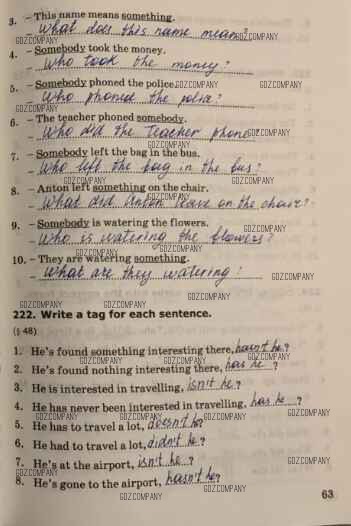 3. – This name means something.
– What does this name mean?
GDZ.COMPANY
4. – Somebody took the money.
– Who took the money?
5. – Somebody phoned the police.
– Who phoned the police?
6. – The teacher phoned somebody.
– Who did the teacher phone
7. – Somebody left the bag in the bus.
– Who left the bag in the bus?
8. – Anton left something on the chair.
– What did Anton leave on the chair?
9. – Somebody is watering the flowers.
– Who is watering the flowers?
10. – They are watering something.
– What are they watering?
222. Write a tag for each sentence.
(§ 48)
1. He's found something interesting there, hasn't he?
2. He's found nothing interesting there, has he ?
3. He is interested in travelling, isn't he?
4. He has never been interested in travelling, has he ?
5. He has to travel a lot, doesn't he?
6. He had to travel a lot, didn't he?
7. He's at the airport, isn't he ?
8. He's gone to the airport, hasn't he?
63